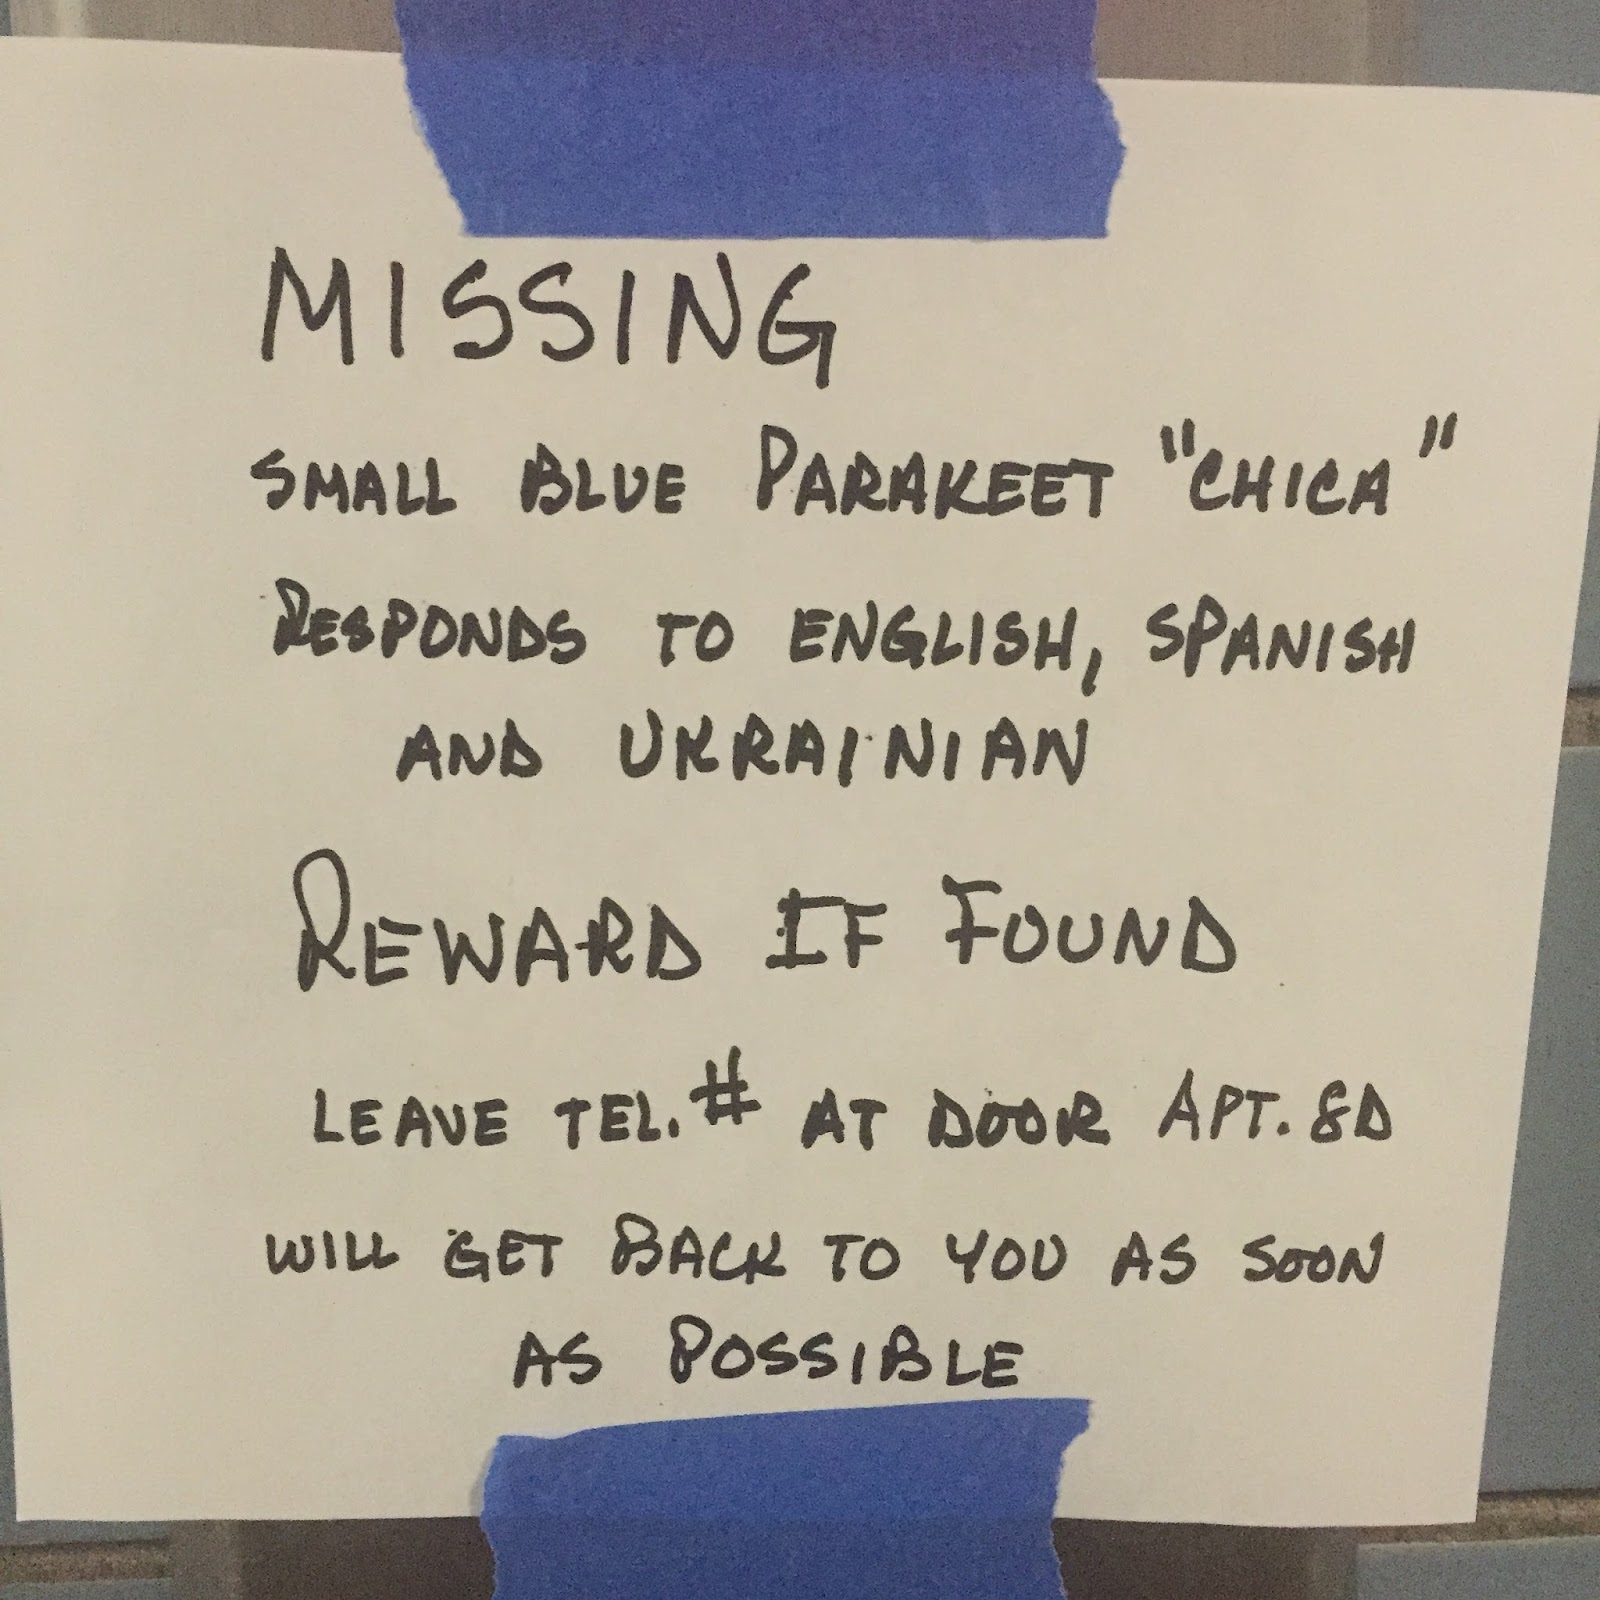 MISSING
SMALL BLUE PARAKEET "CHICA"
RESPONDS TO ENGLISH, SPANISH
AND UKRAINIAN
REWARD IF FOUND
LEAVE TEL. # AT DOOR APT. 8D
WILL GET BACK TO YOU AS SOON
AS POSSIBLE